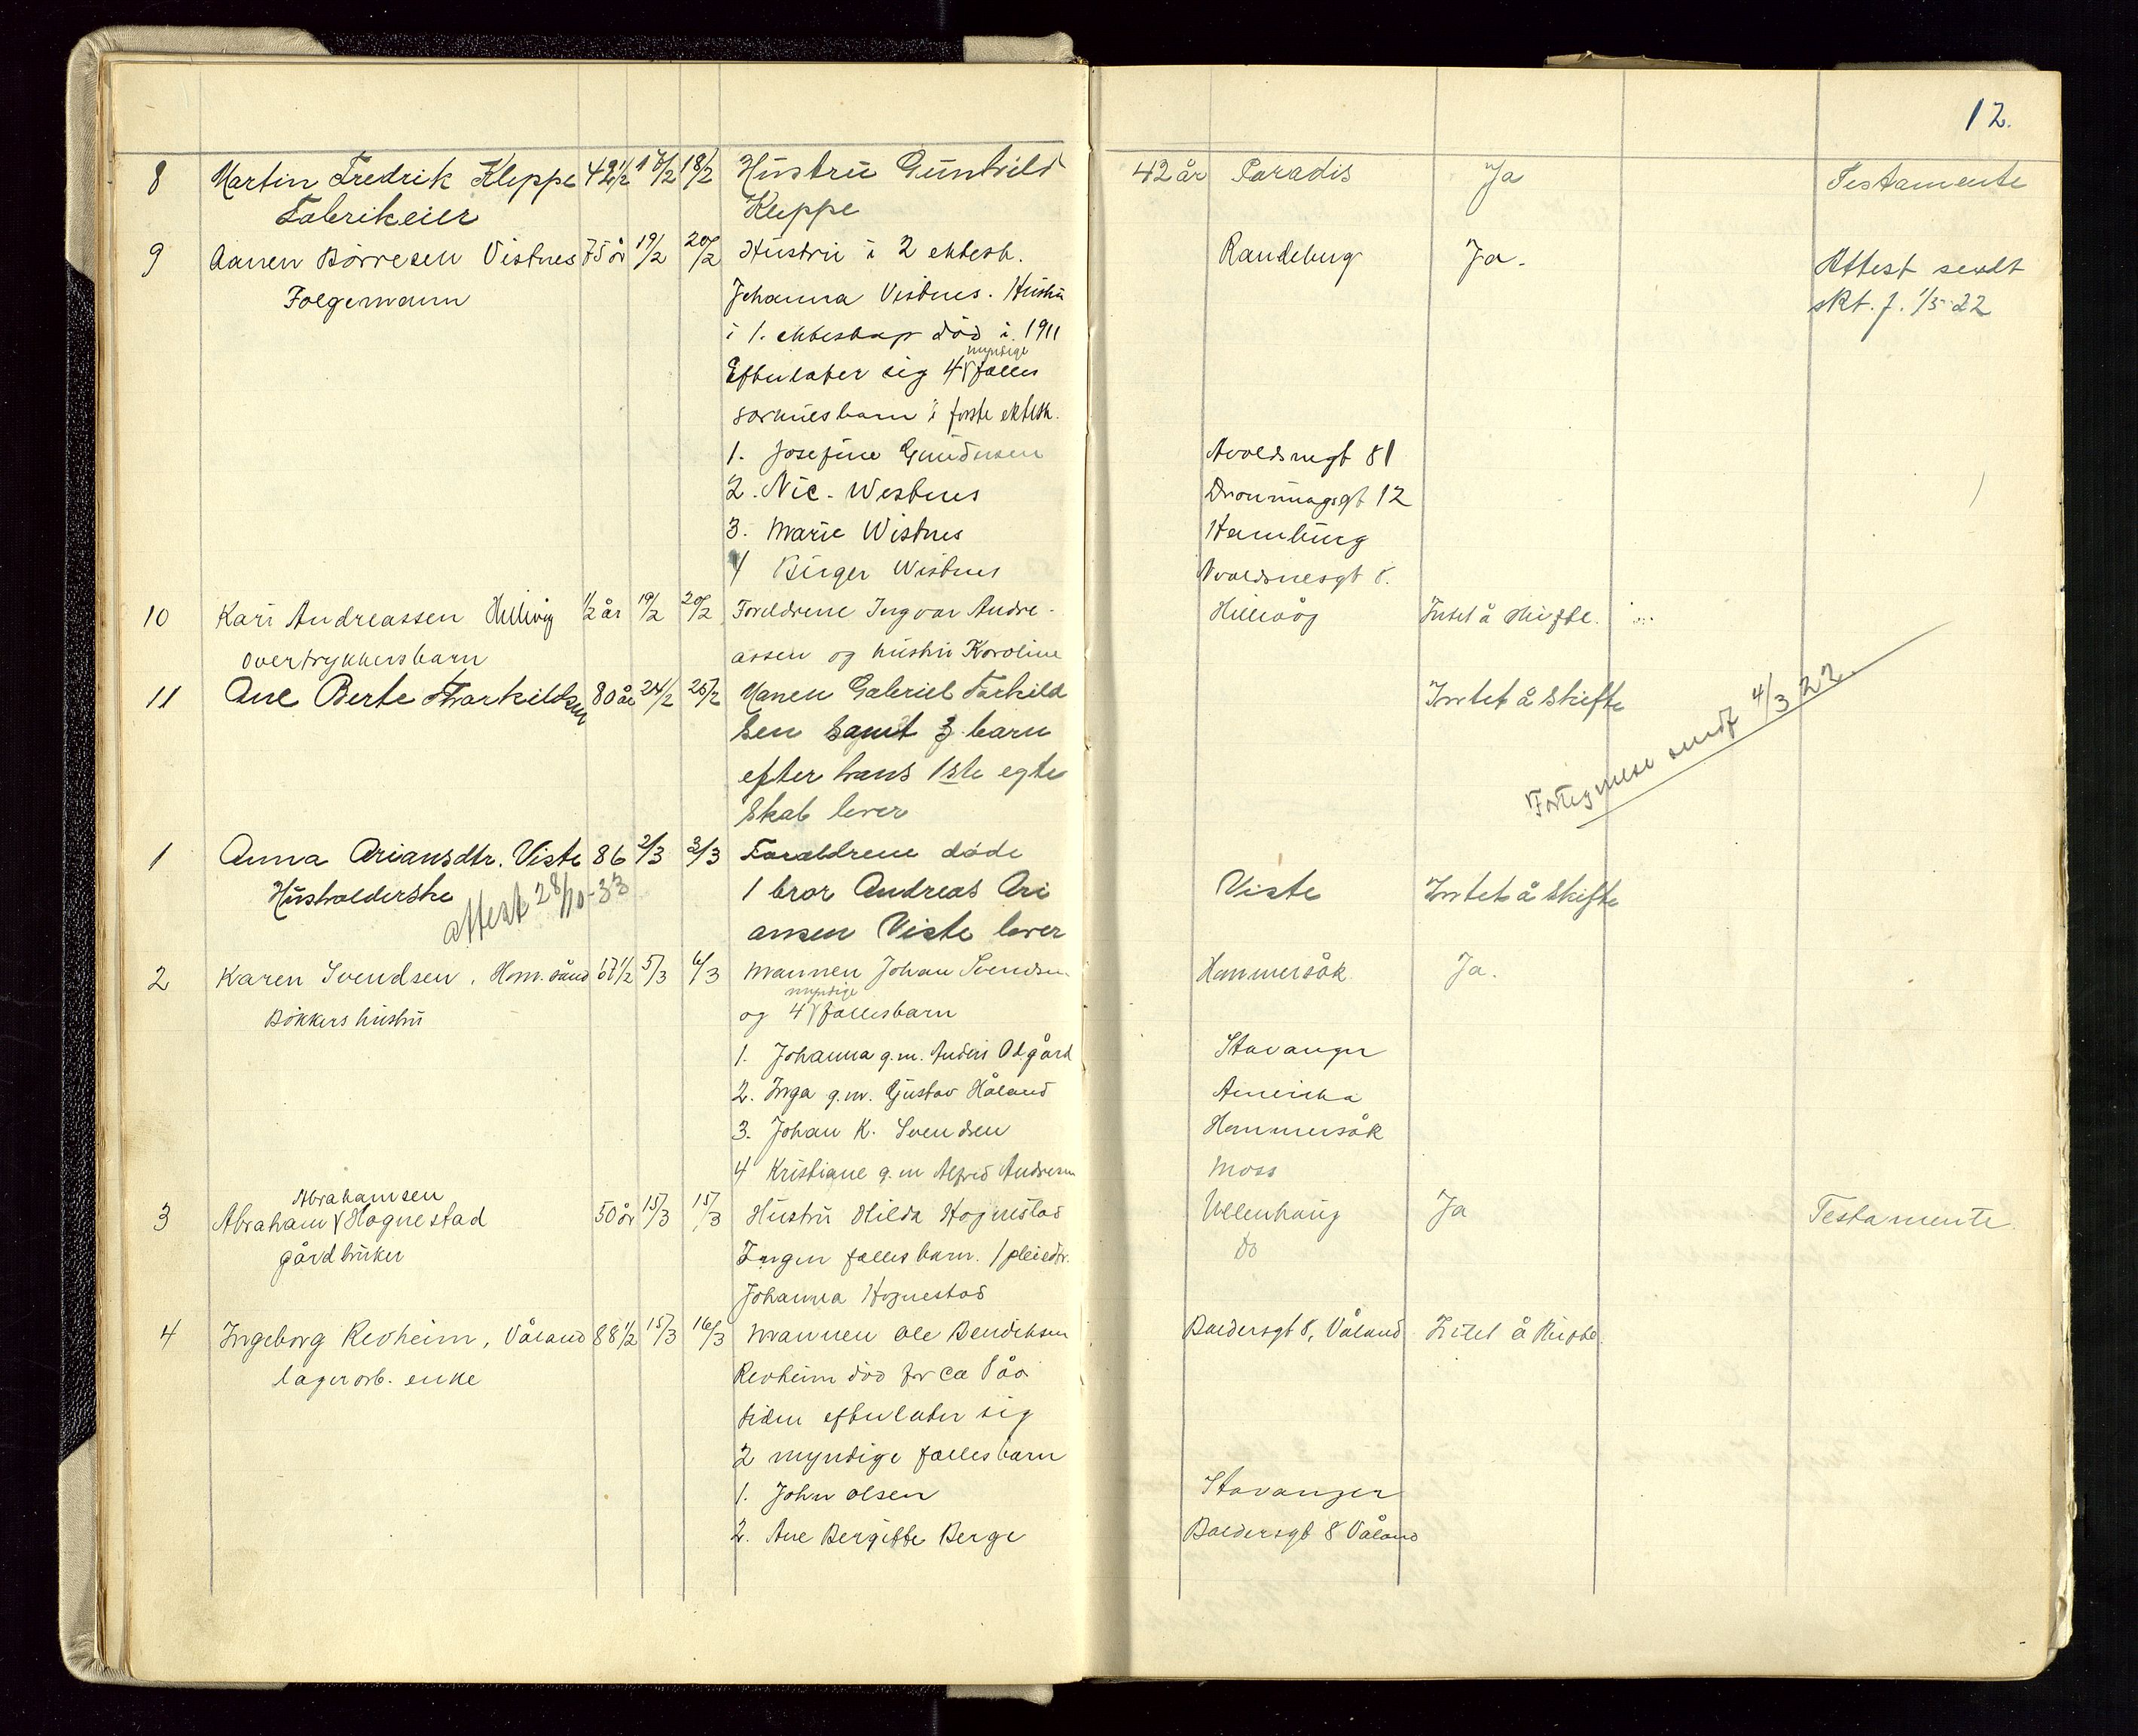 12.
8 Martin Fredrik Kleppe 42 1/2 17/2 18/2 Hustru Gunhild 42 år Paradis Ja Testamente
Fabrikeier Kleppe
9 Aanen Børresen Vistnes 75 år 19/2 20/2 Hustru i 2 ektesk. Randeburg Ja. Attest sendt
Folgemann Johanna Vistnes. Hustru skt. f. 1/5 22
i 1. ekteskap död i 1911
Efterlater sig 4 myndige fælles
særkulsbarn i første ektesk.
1. Josefine Gundersen Avoldsnegt 81
2. Nic. Westnes Dronningsgt 12
3. Marie Wistnes Hamburg
4 Birger Wistnes Avoldsnesgt 8.
10 Kari Andreassen Hillevåg 1/2 år 19/2 20/2 Foreldrene Ingvar Andre- Hillevåg Intet å skifte.
overtrykkersbarn assen og hustru Karoline
11 Ane Berte Tharkildsen 80 år 24/2 25/2 Manen Gabriel Tarkild Intet å skifte
sen samt 3 barn
efter hans 1ste egte
skab lever
Fortegnelse sendt 4/3 22
1 Anna Ariansdtr. Viste 86 2/3 3/3 Forældrene døde
Husholderske 1 bror Andreas Ari Viste Intet å skifte
attest 28/10-33
ansen Viste lever
2 Karen Svendsen, Hom. sand 67 1/2 5/3 6/3 Mannen Johan Svendsen Hommersåk Ja.
Bökkers hustru og 4 myndige fællesbarn
1. Johanna g.m. Anders Odgård Stavanger
2. Inga g.m. Gustav Håland Amerika
3. Johan K. Svendsen Hommersåk
4 Kristiane g.m Alfred Andresen Moss
3 Abraham Abrahamsen Hognestad 50 år 15/3 15/3 Hustru Hilda Hognestad Ullenhaug Ja Testamente.
gårdbruker Ingen fælles barn. 1 pleiedtr. Do
Johanna Hognestad
4 Ingeborg Revheim, Våland 88 1/2 15/3 16/3 Mannen Ole Bendiksen Baldersgt 8, Våland Intet å skifte.
lagerarb. enke Revheim död for ca 8 år
siden efterlater sig
2 myndige fælles barn
1. John Olsen Stavanger
2. Ane Bergitte Berge Baldersgt 8 Våland